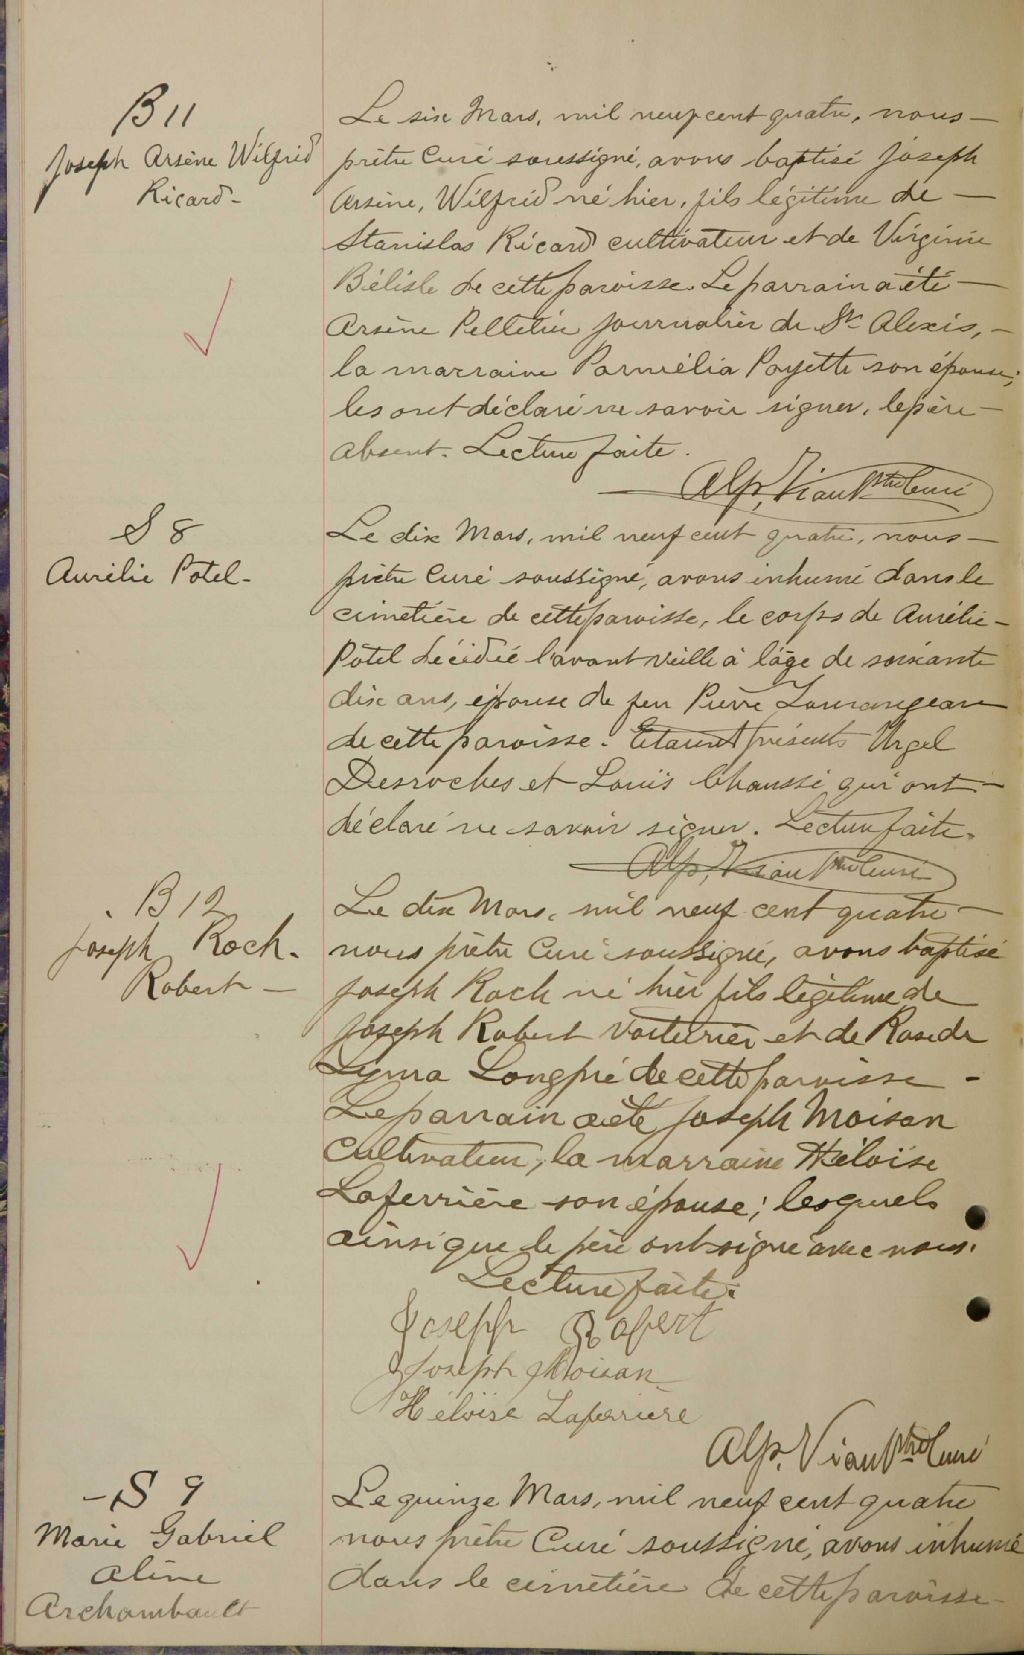 B 11
Joseph Arsène Wilfrid
Ricard -
Le six Mars, mil neuf cent quatre, nous -
prêtre Curé soussigné, avons baptisé Joseph
Arsène, Wilfrid né hier, fils légitime de -
Stanislas Ricard cultivateur et de Virginie
Bélisle de cette paroisse. Le parrain a été -
Arsène Pelletier journalier de St Alexis, -
la marraine Parmélia Payette son épouse,
les ont déclaré ne savoir signer, le père -
absent. Lecture faite.
Alp. Viau Ptre Curé
S 8
Aurélie Potel -
Le dix Mars, mil neuf cent quatre, nous -
prêtre Curé soussigné, avons inhumé dans le
cimetière de cette paroisse, le corps de Aurélie -
Potel décidée l'avant veille à l'âge de soixante
dix ans, épouse de feu Pierre Laurangeau
de cette paroisse. Etaient présents Urgel
Desroches et Louis Chaussé qui ont -
déclaré ne savoir signer. Lecture faite.
Alp. Viau Ptre Curé
B 12
Joseph Roch.
Robert -
Le dix Mars, mil neuf cent quatre -
nous prêtre Curé soussigné, avons baptisé
Joseph Roch né hier fils légitime de
Joseph Robert voiturier et de Rose de
Lyma Longpré de cette paroisse -
Le parrain a été Joseph Moisan
cultivateur, la marraine Héloïse
Laferrière son épouse; lesquels
ainsi que le père ont signé avec nous.
Lecture faite.
Joseph Robert
Joseph Moisan
Héloïse Laferriere
Alp. Viau Ptre Curé
- S 9
Marie Gabriel
Aline
Archambault
Le quinze Mars, mil neuf cent quatre
nous prêtre Curé soussigné, avons inhumé
dans le cimetière de cette paroisse -